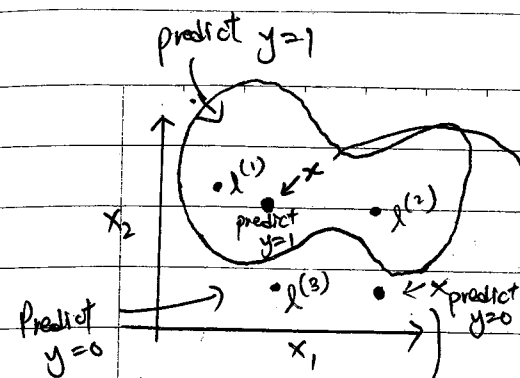 predict y=1
l^(1)
x
predict
y=1
l^(2)
x_2
l^(3)
x predict
y=0
Predict
y=0
x_1